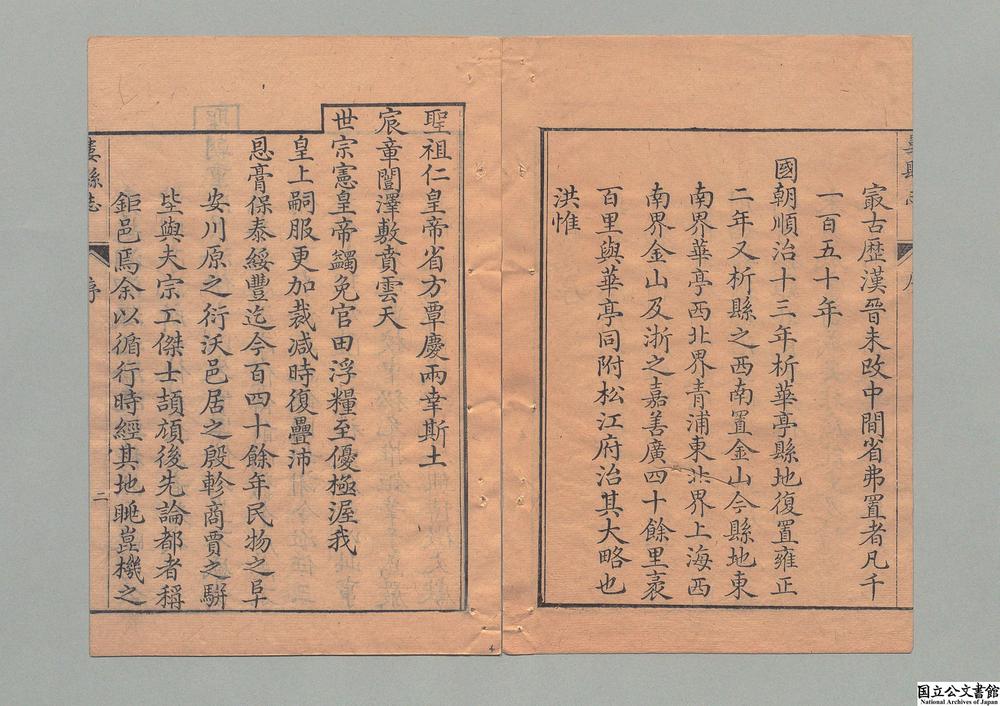 冣古歷漢晉未改中間省弗置者凡千
一百五十年
國朝順治十三年析華亭縣地復置雍正
二年又析縣之西南置金山今縣地東
南界華亭西北界青浦東北界上海西
南界金山及浙之嘉善廣四十餘里袤
百里與華亭同附松江府治其大略也
洪惟
聖祖仁皇帝省方覃慶兩幸斯土
宸章闓澤敷賁雲天
世宗憲皇帝蠲免官田浮糧至優極渥我
皇上嗣服更加裁減時復疊沛
恩膏保泰綏豐迄今百四十餘年民物之阜
安川原之衍沃邑居之殷軫商賈之駢
坒與夫宗工傑士頡頏後先論都者稱
鉅邑焉余以循行時經其地眺崑機之
婁縣志
序
二
国立公文書館
National Archives of Japan